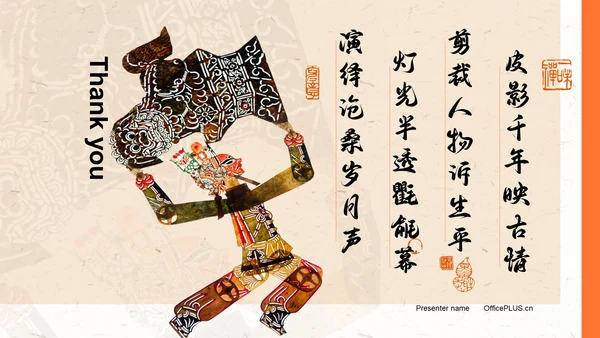 皮影千年映古情
剪裁人物诉生平
灯光半透氍毹幕
演绎沧桑岁月声
Thank you
Presenter name
OfficePLUS.cn